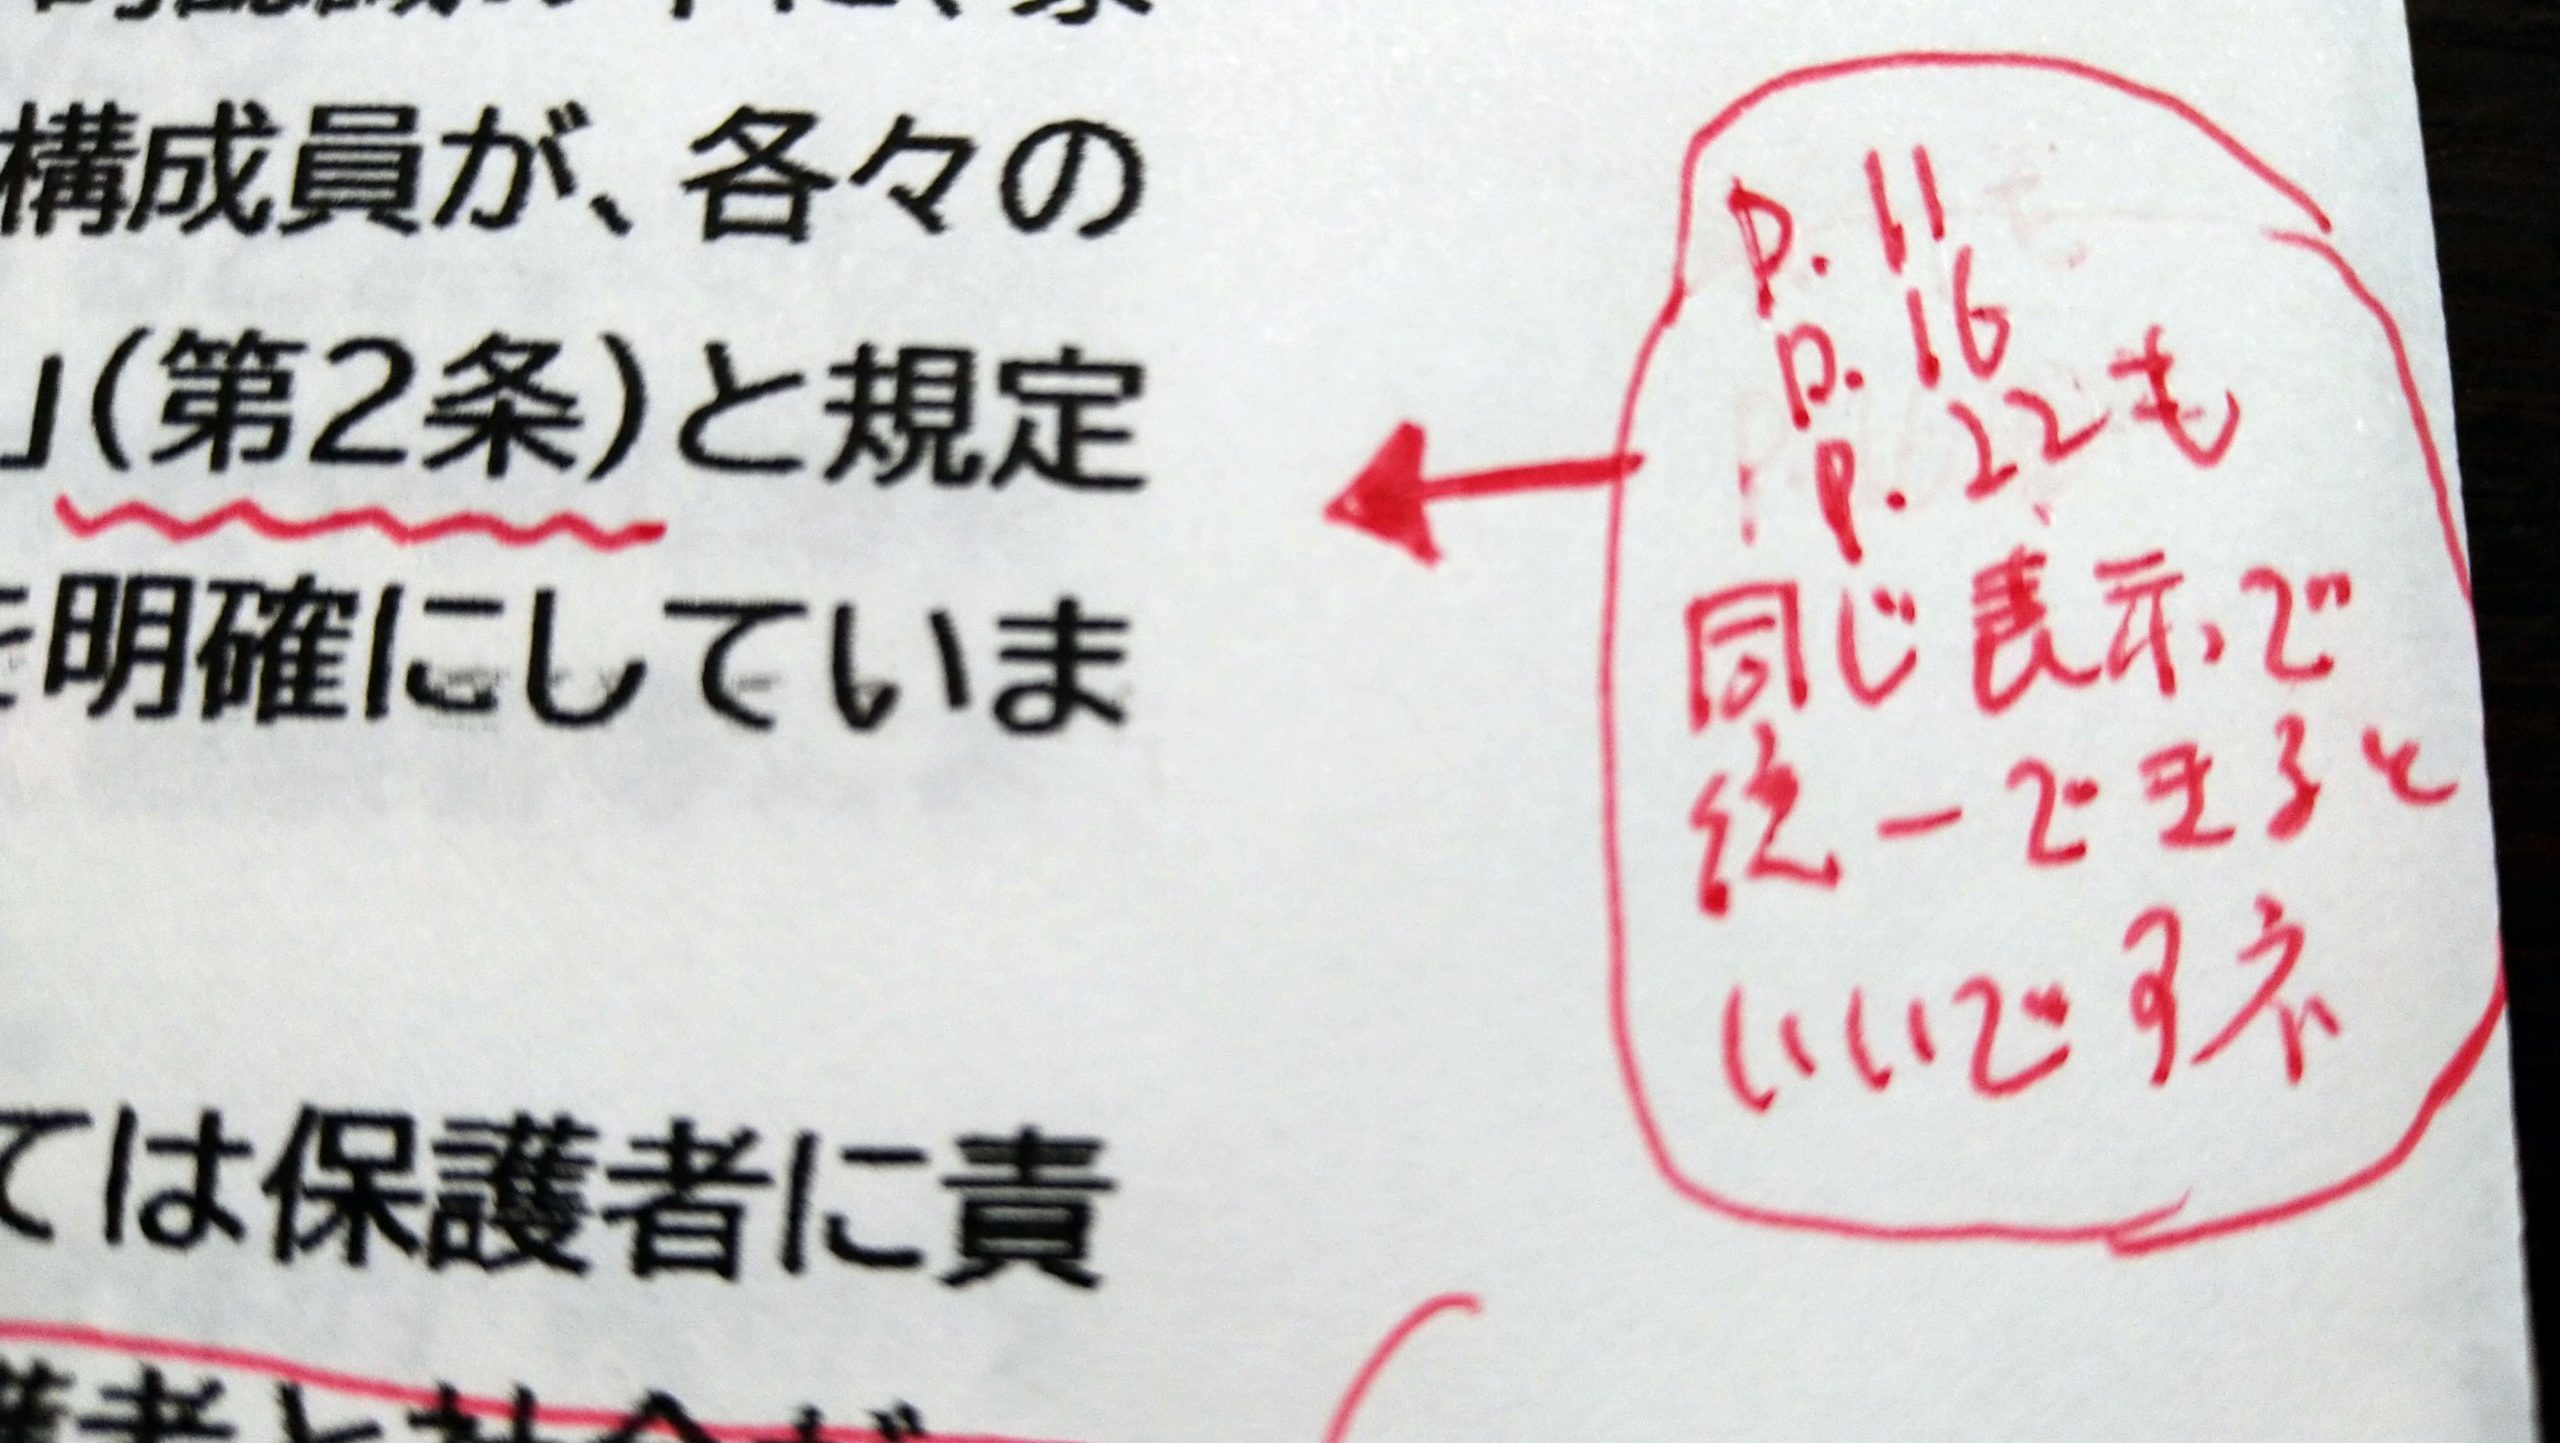 構成員が、各々の
」(第2条)と規定
を明確にしていま
ては保護者に責
護者と社会が
p. 11
p. 16
p. 22も
同じ表示で
統一できると
いいですネ